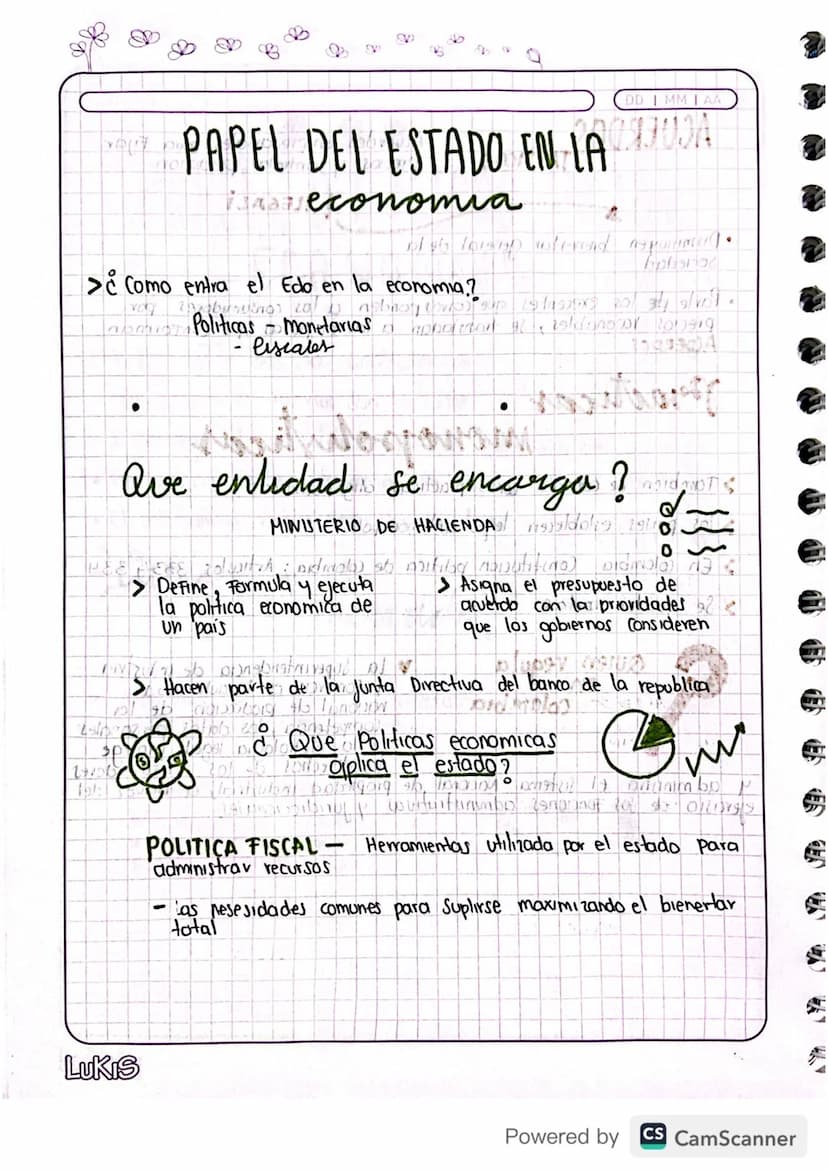 DD | MM | AA
PAPEL DEL ESTADO EN LA
economia
> ¿ Como entra el Edo en la economia?
Politicas - Monetarias
- fiscales
Que entidad se encarga?
MINISTERIO DE HACIENDA
> Define, Formula y ejecuta
la politica economica de
un país
> Asigna el presupuesto de
acuerdo con la prioridades
que los gobiernos consideren
> Hacen parte de la junta Directiva del banco de la republica
¿ Que Politicas economicas
aplica el estado?
POLITICA FISCAL - Herramientas utilizada por el estado para
administrar recursos
- las nesesidades comunes para suplirse maximizando el bienertar
total
LUKIS
Powered by CS CamScanner